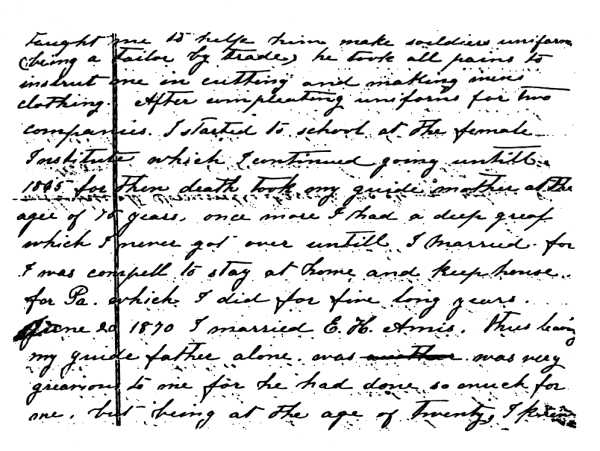 taught me to help him make soldiers uniform
(being a tailor by trade,) he took all pains to
instrut me in cutting and making mens
clothing. After compleating uniforms for two
companies. I started to school at the female
Institute which I continued going untill
1865 for then death took my guide mother at the
agee of 15 years, once more I had a deep greaf
which I never got over untill I married for
I was compell to stay at home and keep house
for Pa. which I did for five long years.
June 20 1870 I married E. H. Amis. thus leaving
my guide father alone. was was very
greavious to me for he had done so much for
me. but being at the age of twenty, I